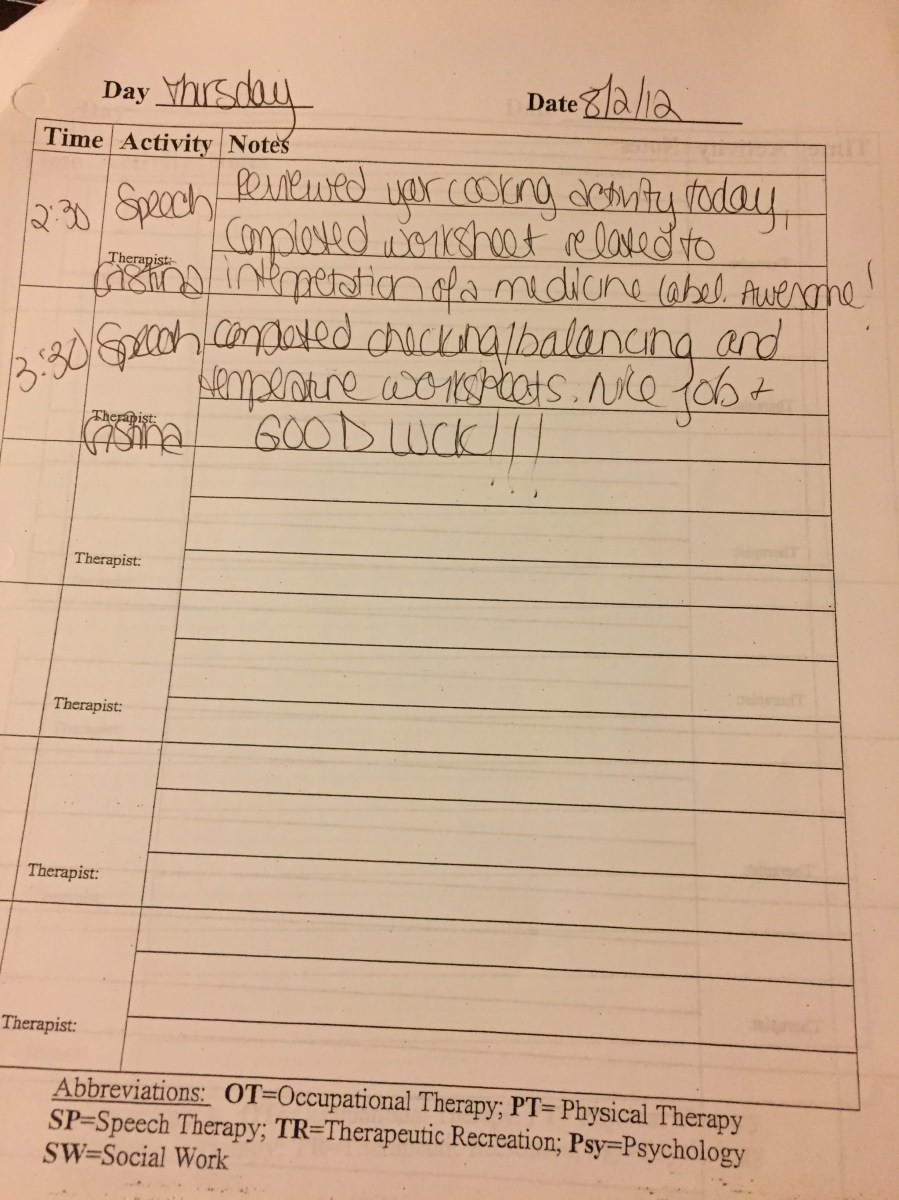 Day Thrsday Date 8/2/12
Time Activity Notes
2:30 Speech Reviewed your cooking activity today,
completed worksheet related to
Therapist: Cristina interpretation of a medicine label. Awesome!
3:30 Speech completed checking/balancing and
temperature worksheets. Nice job +
Therapist: Cristina GOOD LUCK!!!
Therapist:
Therapist:
Therapist:
Therapist:
Abbreviations: OT=Occupational Therapy; PT= Physical Therapy
SP=Speech Therapy; TR=Therapeutic Recreation; Psy=Psychology
SW=Social Work